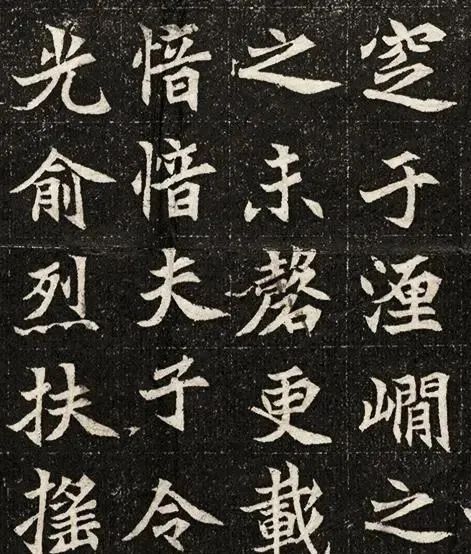 窆于湹澗之
之未磬更載
愔愔夫子令
光俞烈扶搖